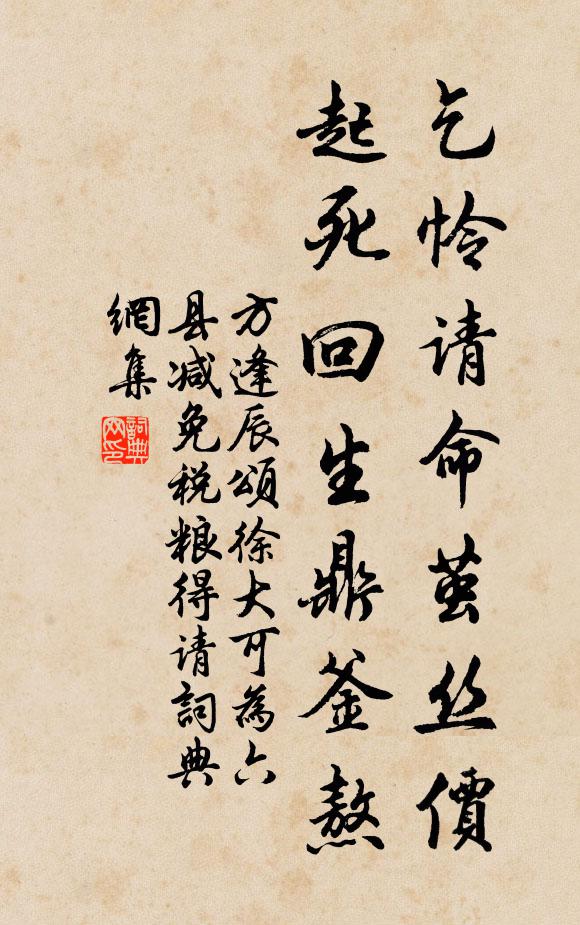 乞怜请命茧丝價
起死回生鼎釜熬
方逢辰頌徐大可為六
县减免税粮得请詞典
網集
詞典網印